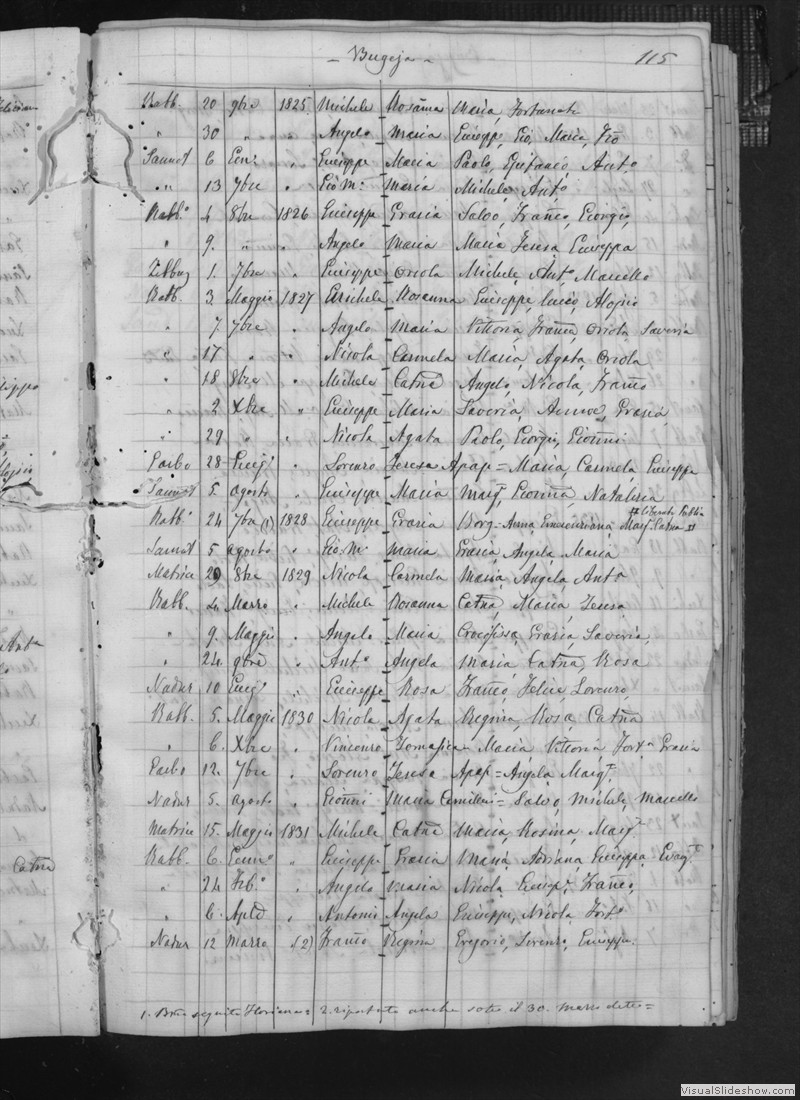 - Bugeja - 115
Rabb. 20 9bre 1825 Michele Rosanna Maria, Fortunata
" 30 " " Angelo Maria Giuseppe, Pio, Maria,
Sannat 6 Genn. " Giuseppe Maria Paolo, Epifanio, Anto
" 13 7bre " Gio M. Maria Michele, Anto
Rabb. 4 8bre 1826 Giuseppe Grazia Salvo, Franco, Giorgio
" 9. " " Angelo Maria Maria Teresa Giuseppa
Zebbug 1. 7bre " Giuseppe Orsola Michele, Anto Marcello
Rabb. 3. Maggio 1827 Michele Rosanna Giuseppe, Lucio, Aloisio
" 7 7bre " Angelo Maria Vittoria, Franca, Orsola Saveria
" 17 " " Nicola Carmela Maria, Agata, Orsola
" 18 8bre " Michele Catna Angelo, Nicola, Franco
" 2 Xbre " Giuseppe Maria Saveria, Grazia
" 29 " " Nicola Agata Paolo, Giorgio, Gionni
Caibo 28 Giugo " Lorenzo Teresa Apap = Maria, Carmela, Giuseppa
Sannat 5. agosto " Giuseppe Maria Margta Natalizia
Rabb. 24 7bre (1) 1828 Giuseppe Grazia Borg = Anna, Vincenziana, Marg. Catna #
Sannat 5 agosto " Gio M. Maria Grazia, Angela, Maria
Matrice 29 8bre 1829 Nicola Carmela Maria, Angela, Anto
Rabb. 4. Marzo " Michele Rosanna Catna, Maria, Teresa
" 9. Maggio " Angelo Maria Crocifissa, Grazia, Saveria,
" 24. 9bre " Anto Angela Maria, Catna, Rosa
Nadur 10 Giugo " Giuseppe Rosa Franco, Felice, Lorenzo
Rabb. 5. Maggio 1830 Nicola Agata Regina, Rosa, Catna
" 6. Xbre " Vincenzo Tomasica = Maria Vittoria, Forta Grazia
Caibo 12. 7bre " Lorenzo Teresa Apap = Angela Margt
Nadur 5. agosto " Gionni Maria Camilleri = Salvo, Michele, Marcello
Matrice 15. Maggio 1831 Michele Catna Maria Rosina, Margt
Rabb. 6. Genno " Giuseppe Grazia Maria, Adriana, Giuseppa
" 24 Febo " Angelo Maria Nicola Giuspe, Franco,
" 6. Aple " Antonio Angela Giuseppe, Nicola, Forto
Nadur 12 Marzo (2) Franco Regina Gregorio, Lorenzo, Giuseppe.
1. seguita Floriana = 2. riportato anche sotto il 30. Marzo detto =
VisualSlideshow.com